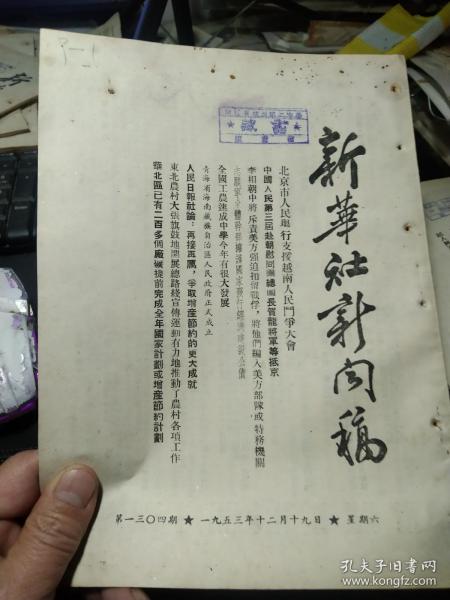 新華社新聞稿
北京市人民舉行支援越南人民鬥爭大會
中國人民第三屆赴朝慰問團總團長賀龍將軍等抵京
李相朝中將斥責美方强迫扣留戰俘，將他們編入美方部隊或特務機關
全國工農速成中學今年有很大發展
青海省海南藏族自治區人民政府正式成立
人民日報社論：再接再厲，爭取增產節約的更大成就
東北農村大張旗鼓地開展總路綫宣傳運動有力地推動了農村各項工作
華北區已有二百多個廠礦提前完成全年國家計劃或增產節約計劃
第一三〇四期 ★ 一九五三年十二月十九日 ★ 星期六
孔夫子旧书网
book.kongfz.com